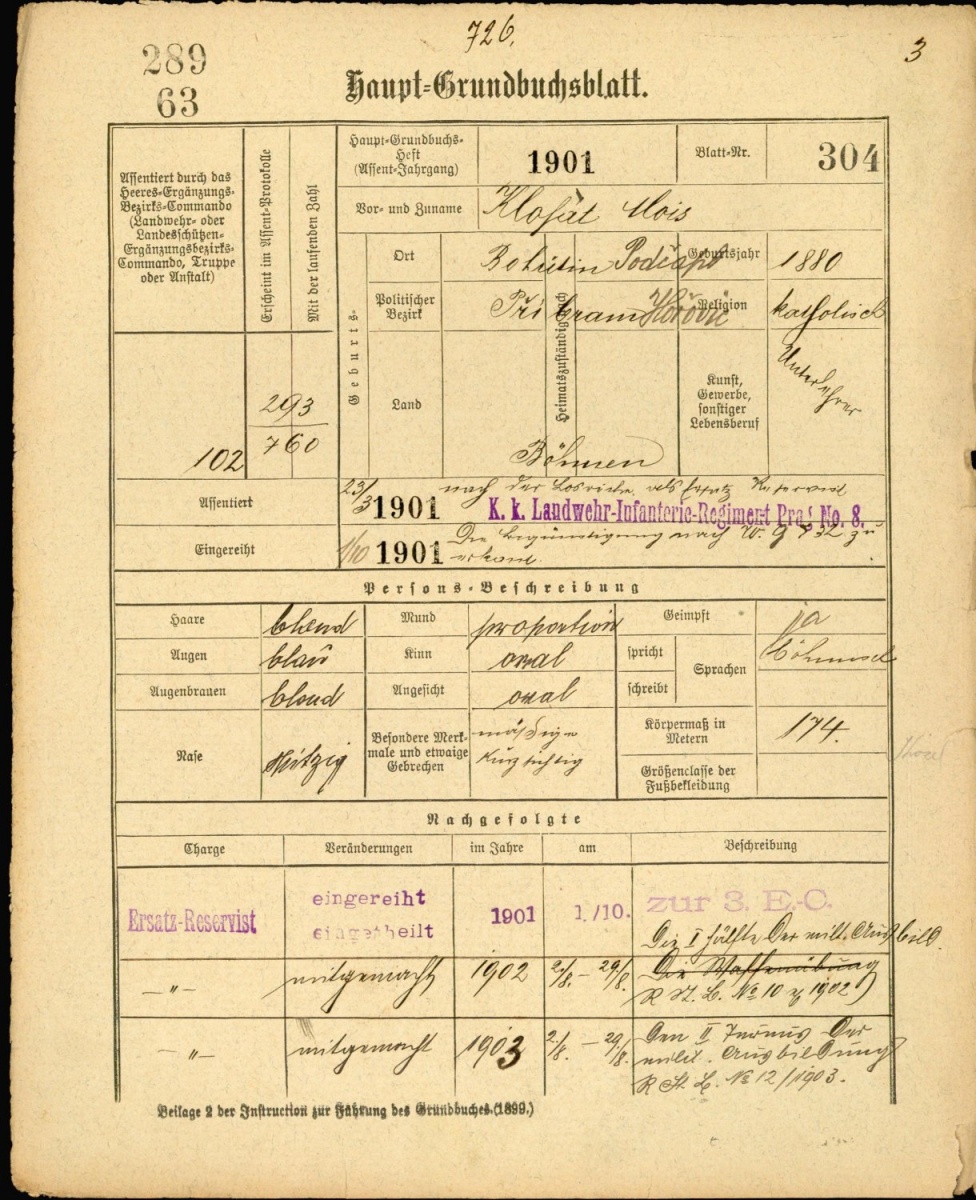 726.
3
289
63
Haupt-Grundbuchsblatt.
Assentiert durch das
Heeres-Ergänzungs-
Bezirks-Commando
(Landwehr- oder
Landesschützen-
Ergänzungsbezirks-
Commando, Truppe
oder Anstalt)
Erscheint im Assent-Protokolle
Mit der laufenden Zahl
102
293
760
Haupt-Grundbuchs-
Heft
(Assent-Jahrgang)
1901
Blatt-Nr.
304
Vor- und Zuname
Klofát Alois
Geburts-
Ort
Bohutin
Heimatszuständigkeit
Podčápl
Geburtsjahr
1880
Politischer
Bezirk
Přibram
Hořovic
Religion
katholisch
Land
Böhmen
Kunst,
Gewerbe,
sonstiger
Lebensberuf
Unterlehrer
Assentiert
23/3 1901
nach der Losreihe als Ersatz Reservist
K. k. Landwehr-Infanterie-Regiment Prag No. 8.
Eingereiht
1/10 1901
Die Begünstigung nach W. G § 32 zu
erkant.
Persons-Beschreibung
Haare
blond
Mund
proportion
Geimpft
ja
Augen
blau
Kinn
oval
spricht
Sprachen
böhmisch
Augenbrauen
blond
Angesicht
oval
schreibt
Nase
spitzig
Besondere Merk-
male und etwaige
Gebrechen
mäßige
kurzsichtig
Körpermaß in
Metern
174.
Größenclasse der
Fußbekleidung
Nachgefolgte
Charge
Veränderungen
im Jahre
am
Beschreibung
Ersatz-Reservist
eingereiht
eingetheilt
1901
1./10.
zur 3. E.-C.
Die I Hälfte der milt. Ausbild.
—„—
mitgemacht
1902
2/8. – 29/8.
Die Waffenübung
R St. B. No 10 1902
—„—
mitgemacht
1903
2/8. – 29./8.
Den II Turnus der
milit. Ausbildung
R St. B. No 12/1903.
Beilage 2 der Instruction zur Führung des Grundbuches (1899.)